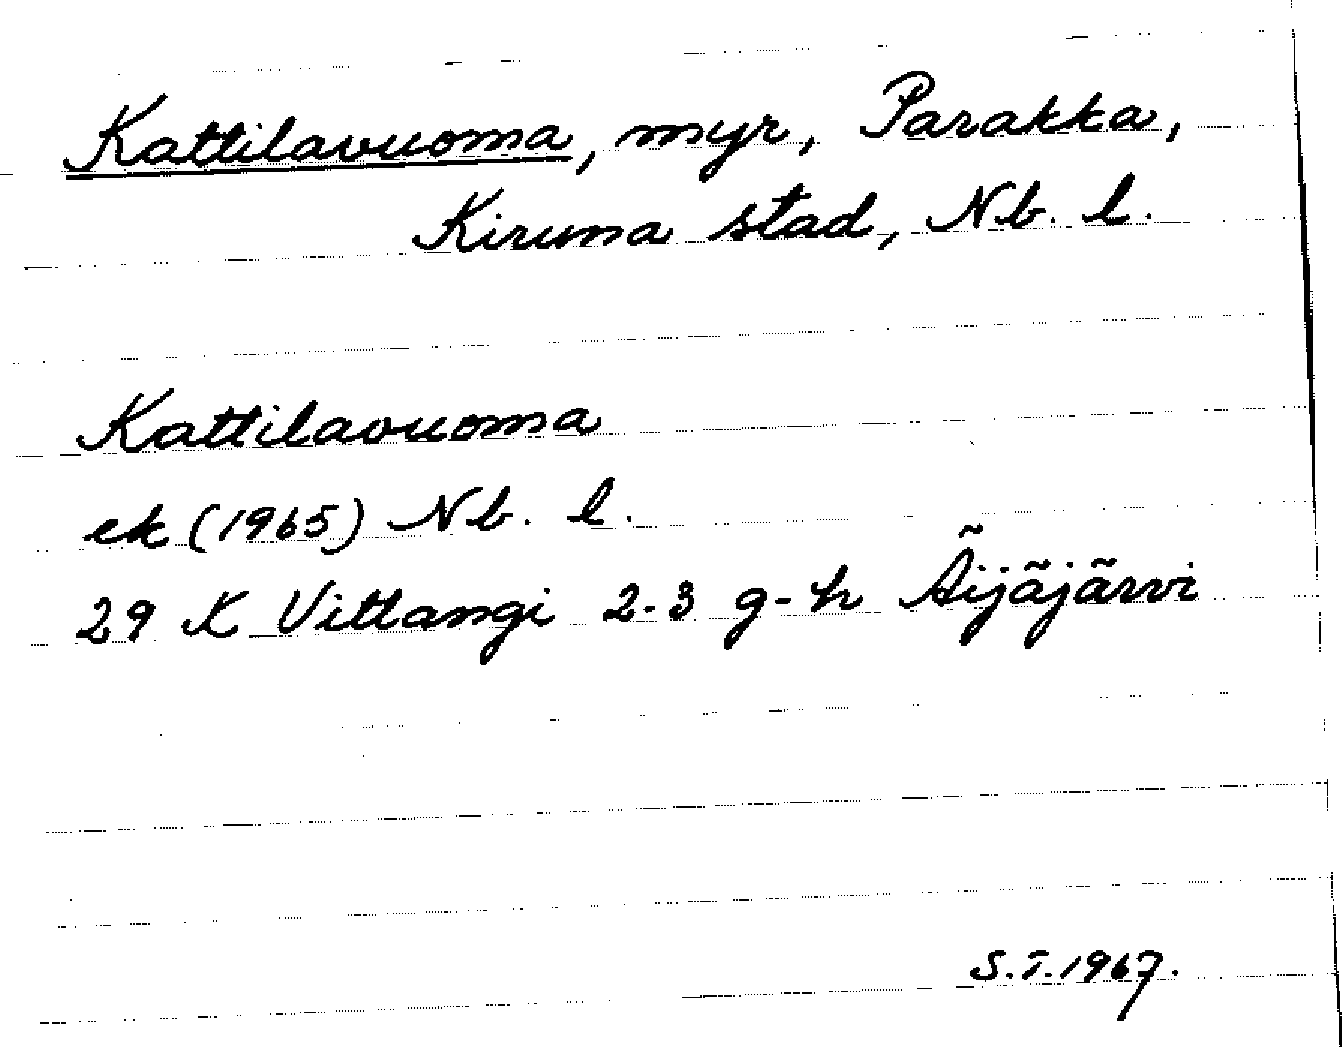 Kattilavuoma, myr, Parakka,
Kiruna stad, Nb. l.
Kattilavuoma
ek (1965) Nb. l.
29 K Vittangi 2-3 g-h Äijäjärvi
S.T. 1967.